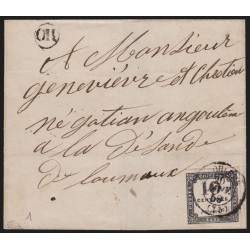 OR
A Monsieur
genevièvre et Chrétien
négotian angoulem
a la Désande
de loumaux
10
CENTIMES
1